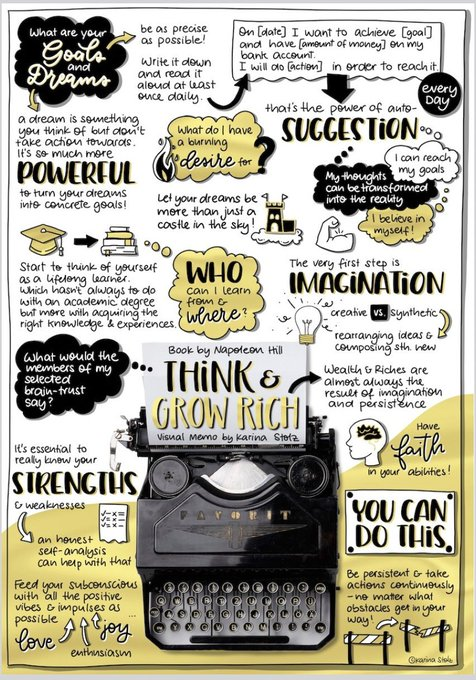 What are your
Goals
and
Dreams
be as precise
as possible!
Write it down
and read it
aloud at least
once daily.
On [date] I want to achieve [goal]
and have [amount of money] on my
bank account.
I will do [action] in order to reach it.
every
Day
that's the power of auto-
SUGGESTION
a dream is something
you think of but don't
take action towards.
It's so much more
POWERFUL
to turn your dreams
into concrete goals!
What do I have
a burning
desire for
?
I can reach
my goals
My thoughts
can be transformed
into the reality
I believe in
myself!
Let your dreams be
more than just a
castle in the sky!
Start to think of yourself
as a lifelong learner.
Which hasn't always to do
with an academic degree
but more with acquiring the
right knowledge & experiences.
WHO
can I learn
from &
where?
The very first step is
IMAGINATION
creative vs. synthetic
rearranging ideas &
composing sth. new
What would the
members of my
selected
brain-trust
say?
Book by Napoleon Hill
THINK &
GROW RICH
Visual Memo by Karina Stolz
Wealth & Riches are
almost always the
result of imagination
and persistence
Have
faith
in your abilities!
It's essential to
really know your
STRENGTHS
& weaknesses
an honest
self-analysis
can help with that
FAVORIT
YOU CAN
DO THIS.
Feed your subconscious
with all the positive
vibes & impulses as
possible ...
love
joy
enthusiasm
Be persistent & take
actions continuously
- no matter what
obstacles get in your
way!
©karina stolz